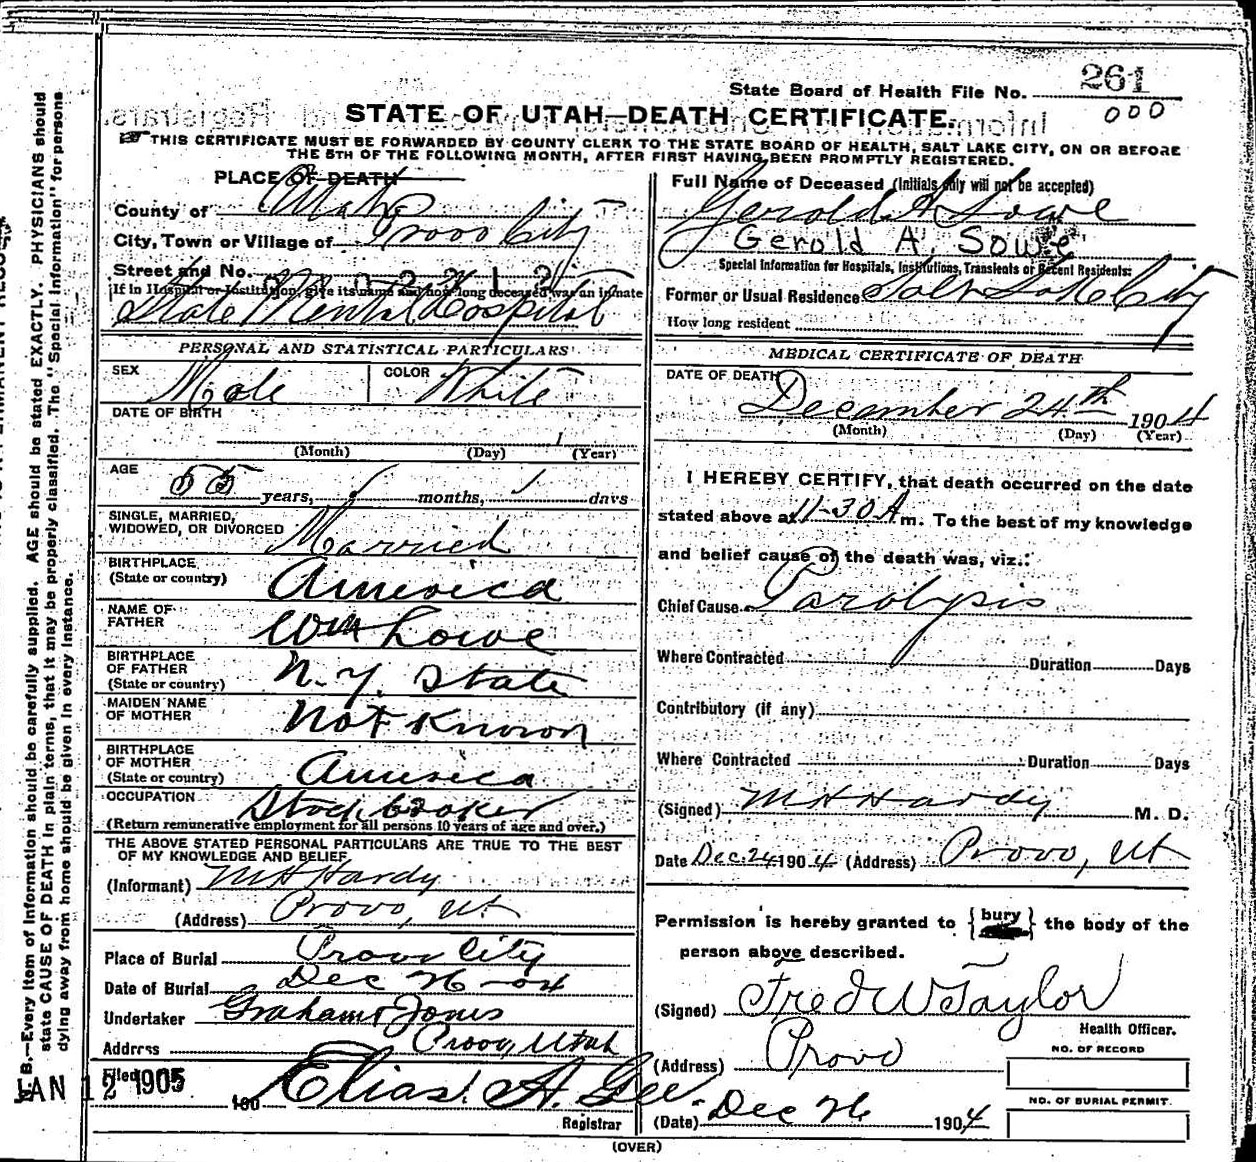 State Board of Health File No. 261
000
STATE OF UTAH—DEATH CERTIFICATE.
THIS CERTIFICATE MUST BE FORWARDED BY COUNTY CLERK TO THE STATE BOARD OF HEALTH, SALT LAKE CITY, ON OR BEFORE
THE 5TH OF THE FOLLOWING MONTH, AFTER FIRST HAVING BEEN PROMPTLY REGISTERED.
PLACE OF DEATH
County of Utah
City, Town or Village of Provo City
Street and No.
If in Hospital or Institution, give its name and how long deceased was an inmate
State Mental Hospital
PERSONAL AND STATISTICAL PARTICULARS
SEX Male COLOR White
DATE OF BIRTH
(Month) (Day) (Year)
AGE
55 years, months, days
SINGLE, MARRIED,
WIDOWED, OR DIVORCED Married
BIRTHPLACE
(State or country) America
NAME OF
FATHER Wm Lowe
BIRTHPLACE
OF FATHER
(State or country) N. Y. State
MAIDEN NAME
OF MOTHER Not Known
BIRTHPLACE
OF MOTHER
(State or country) America
OCCUPATION Stock broker
(Return remunerative employment for all persons 10 years of age and over.)
THE ABOVE STATED PERSONAL PARTICULARS ARE TRUE TO THE BEST
OF MY KNOWLEDGE AND BELIEF
(Informant) M H Hardy
(Address) Provo, Ut
Place of Burial Provo City
Date of Burial Dec 26 - 04
Undertaker Graham & Jones
Address Provo, Utah
Filed JAN 12 1905
190 Elias A. Gee.
Registrar
Full Name of Deceased (Initials only will not be accepted)
Gerold A Lowe
Gerold A. Sowe
Special Information for Hospitals, Institutions, Transients or Recent Residents:
Former or Usual Residence Salt Lake City
How long resident
MEDICAL CERTIFICATE OF DEATH
DATE OF DEATH
December 24th 1904
(Month) (Day) (Year)
I HEREBY CERTIFY, that death occurred on the date
stated above at 11-30 A m. To the best of my knowledge
and belief cause of the death was, viz.:
Chief Cause Paralysis
Where Contracted Duration Days
Contributory (if any)
Where Contracted Duration Days
(Signed) M H Hardy M. D.
Date Dec 24 1904 (Address) Provo, Ut
Permission is hereby granted to {bury} the body of the
person above described.
(Signed) Fred W Taylor
Health Officer.
(Address) Provo
NO. OF RECORD
NO. OF BURIAL PERMIT.
(Date) Dec 26 1904
(OVER)
B.—Every item of information should be carefully supplied. AGE should be stated EXACTLY. PHYSICIANS should
state CAUSE OF DEATH in plain terms, that it may be properly classified. The "Special Information" for persons
dying away from home should be given in every instance.